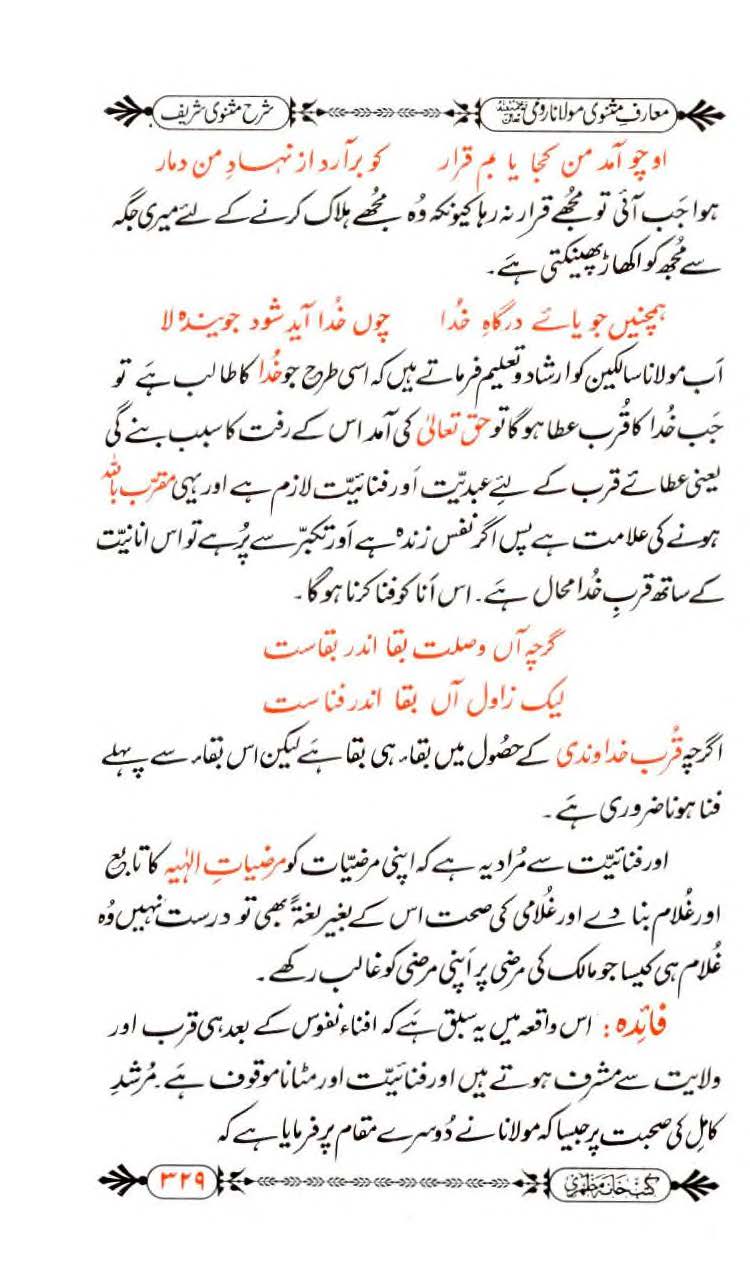 معارف مثنوی مولانا رومی رحمۃ اللہ تعالیٰ علیہ
شرح مثنوی شریف
او چو آمد من کجا یا بم قرار کو برآرد از نہادِ من دمار
ہوا جَب آئی تو مجُھے قرار نہ رہا کیونکہ وُہ مجُھے ہلاک کرنے کے لئے میری جگہ
سے مجُھ کو اکھاڑ پھینکتی ہے۔
ہمچنیں جویائے درگاہِ خُدا چوں خُدا آید شود جویندہ لا
اَب مولانا سالکین کو ارشاد و تعلیم فرماتے ہیں کہ اسی طرح جو خُدا کا طالب ہے تو
جَب خُدا کا قُرب عطا ہو گا تو حق تعالیٰ کی آمد اس کے رفت کا سبب بنے گی
یعنی عطائے قرب کے لئے عبدیّت اَور فنائیّت لازم ہے اور یہی مقرّب باللہ
ہونے کی علامت ہے پس اگر نفس زندہ ہے اَور تکبرّ سے پُر ہے تو اس انانیّت
کے ساتھ قربِ خُدا محال ہَے۔ اس اَنا کو فنا کرنا ہو گا۔
گرچہ آں وصلت بقا اندر بقاست
لیک زاول آں بقا اندر فنا ست
اگرچہ قُربِ خداوندی کے حصُول میں بقاء ہی بقا ہَے لیکن اس بقاء سے پہلے
فنا ہونا ضروری ہَے۔
اور فنائیّت سے مُراد یہ ہے کہ اپنی مرضیّات کو مرضیاتِ الٰہیہ کا تابع
اور غُلام بنا دے اور غُلامی کی صحت اس کے بغیر لغۃً بھی تو درست نہیں وُہ
غُلام ہی کیسا جو مالک کی مرضی پر اَپنی مرضی کو غالب رکھے۔
فائدہ: اس واقعہ میں یہ سبق ہَے کہ افناء نفوس کے بعد ہی قرب اور
ولایت سے مشرف ہوتے ہیں اور فنائیّت اور مٹانا موقوف ہَے۔ مُرشدِ
کامل کی صحبت پر جیسا کہ مولانا نے دُوسرے مقام پر فرمایا ہے کہ
کتب خانہ مظہری
۳۲۹